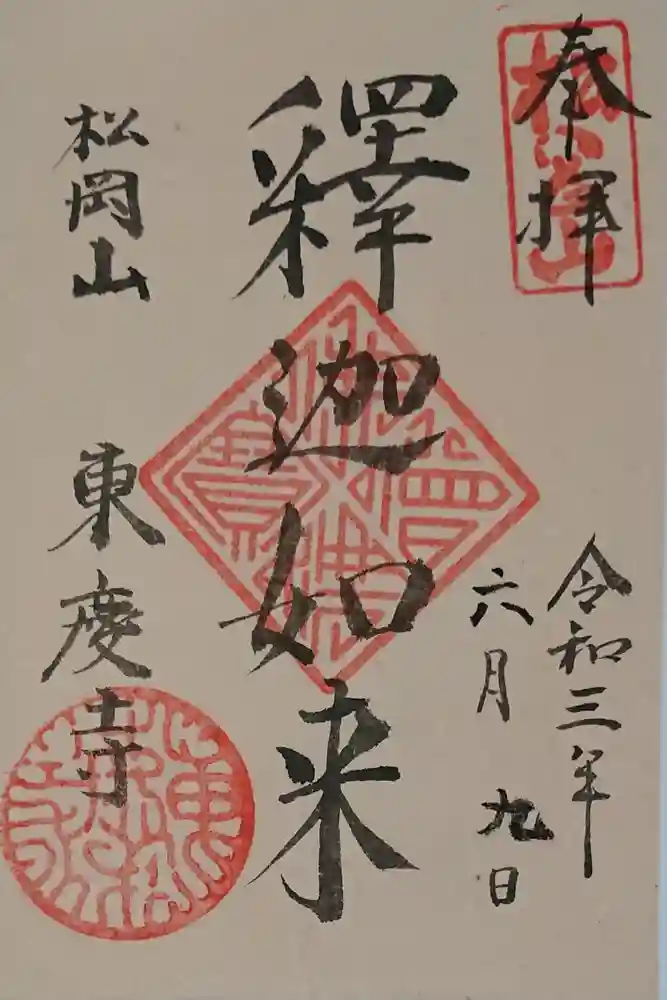 奉拝
松岡山
令和三年
六月九日
釋迦如来
松岡山
東慶寺